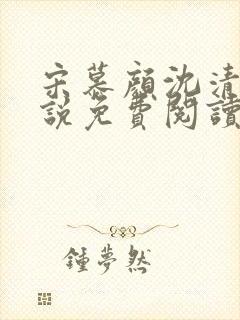 宋慕顏沈清
說免費閱讀
鍾夢然